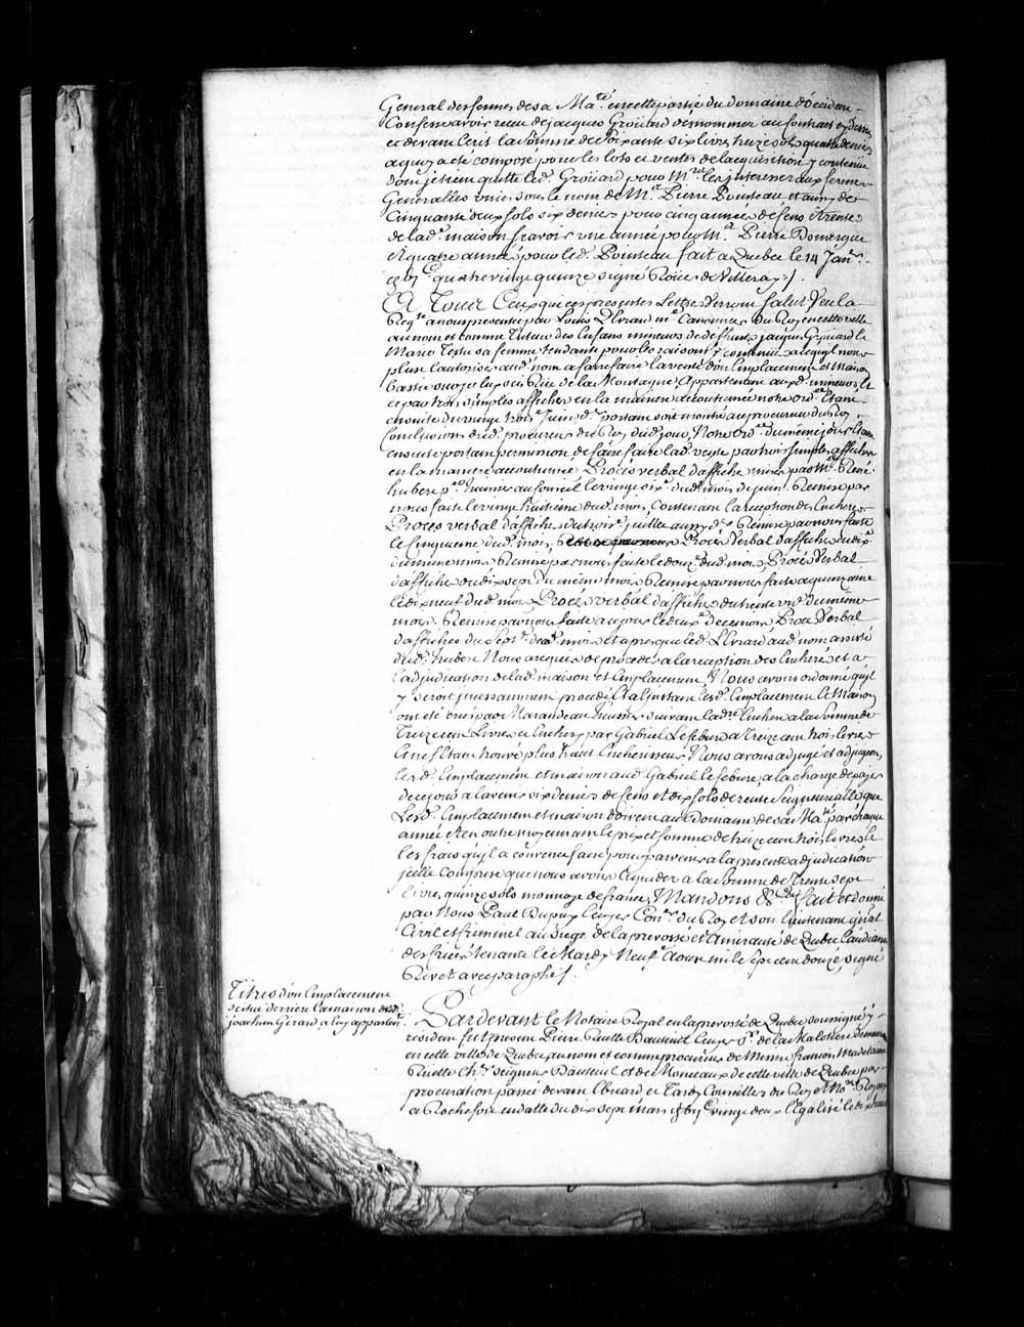 General des fermes de sa Ma.té en cette partie du domaine d'Occident
Confesse avoir receu de Jacques Groüard denommez au Contract cy dessus
et devant Ecrit la somme de Soixante six livres treize sols quatre deniers
a quoy a été composé pour les lots et ventes de l'acquisition y contenüe
dont je tiens quitte led. Groüard pour M.rs les Interessez aux fermes
Generalles unies sous le nom de M.e Pierre Pointeau et aussy de
Cinquante deux sols six deniers pour cinq années de Cens et rentes
de lad.e maison scavoir une année pour M.e Pierre Domergue
et quatre années pour led. Pointeau fait a Quebec le 14 Janv.r
quatre vingt quinze signé Roüer de Villeray /.
A Tous Ceux qui ces presentes Lettres Verront Salut Veu la
Req.te a nous presentée par Louis Levrard m.e Canonnier du Roy en cette ville
au nom et comme Tuteur des Enfans mineurs de deffunts Jacques Groüard et
Marie Testu sa femme tendante pour les raisons y contenües a ce qu'il nous
plust l'autoriser aud. nom a faire faire la vente d'un Emplacement et Maison
Rüe de la Montagne Appartenant auxd. mineurs et
ce par trois simples affiches en la maniere accoutumée notre ord.ce Etant
ensuite du vingt trois Juin d.r portant soit montré au procureur du Roy,
Conclusions dud. procureur du Roy dud. jour, Notre ord.ce du meme jour Etant
ensuite portant permission de faire faire lad. vente par trois simples affiches
en la maniere accoutumée, Procés verbal d'affiche mises par M.e René
hubert p.er huissier au Conseil le vingt six.e dud. mois de juin Remise par
nous faite le vingt huitieme dud. mois, Contenant la reception des Encheres
Procés verbal d'affiche du trois.e juillet aussy d.r Remise par nous faite
le Cinquieme dud. mois, Procés Verbal d'affiche du dix.e
du meme mois Remise par nous faite le douz.e dud. mois, Procés Verbal
d'affiche du dix sept du même mois Remise par nous faite a quinzaine
le dix neuf dud. mois Procés verbal d'affiche du trente un.e du même
mois. Remise par nous faite a ce jour le deux.e de ce mois, Procés Verbal
d'affiches du Sept.e dud. mois et apres que led. Levrard aud. nom assisté
dud. hubert Nous a requis de proceder a la reception des Encheres et a
l'adjudication de lad. maison et Emplacement, Nous avons ordonné qu'il
y seroit incessamment procedé Et a l'Instant lesd. Emplacement et Maison
ont été criés par Marandeau huissier suivant la d.re Enchere a la Somme de
Treize cent Livres et Encheris par Gabriel Lefebvre a Treize cent trois livres
Nous avons adjugé et adjugeons
lesd. Emplacement et maison aud. Gabriel lefebvre, a la charge de payer
de ce jour a l'avenir six deniers de Cens et dix sols de rente Seigneurialle que
Lesd. Emplacement et maison doivent au Domaine de sa Ma.té par chaque
année et en outre moyennant le prix et somme de treize cent trois livres et
les frais qu'il a convenu faire pour parvenir a la presente adjudication
icelle Comprise que nous avons liquidés a la Somme de Trente sept
livres quinze sols monnoye de france, Mandons &c. fait et donné
par Nous Paul Dupuy Ecuyer Con.er du Roy et son Lieutenant g'n'al
Civil et Criminel au Siege de la prevosté et Amirauté de Quebec l'audiance
des Criées tenante le Mardy Neuf.e Aoust mil sept cent douze, signé
Rivet avec paraphe /.
Titres d'un Emplacement
scitué derriere la maison dud.
joachim Girard a luy appartent.
Pardevant le Notaire Royal en la prevosté de Quebec soussigné y
resident fut present Pierre Ruette Dauteuil Ecuyer S.r de la Malotiere demeurant
en cette ville de Quebec au nom et comme procureur de Messire françois Magdelaine
Ruette Ch.er Seigneur D'auteuil et de Monceaux de cette ville de Quebec par
procuration passée devant et Tardy Conseillers du Roy et No.res Royaux
a Rochefort en datte du dix sept mars vingt deux Legalisé le dix huit